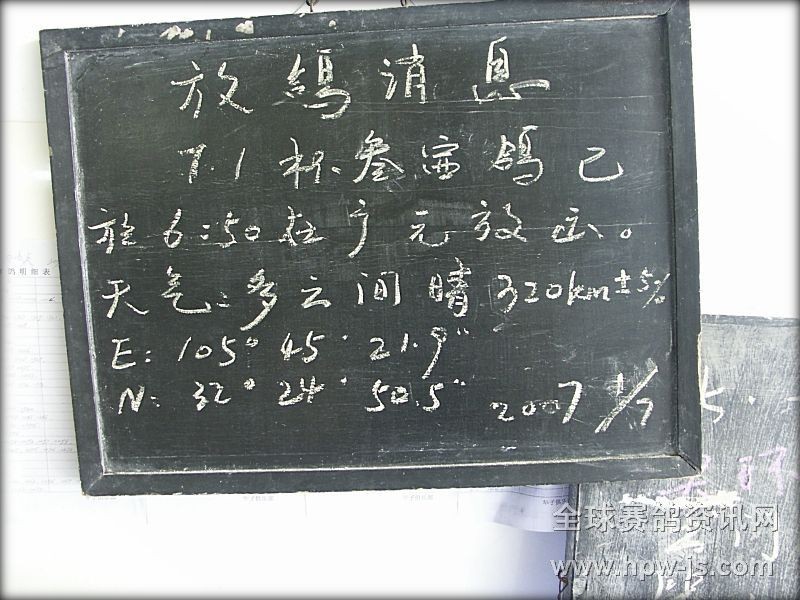 放鸽消息
7.1杯叁赛鸽已
於6:50在广元放出。
天气:多云间晴 320km±5%
E: 105° 45' 21.9"
N: 32° 24' 50.5" 2007 1/7
明细表
全球赛鸽资讯网
www.hpw-js.com